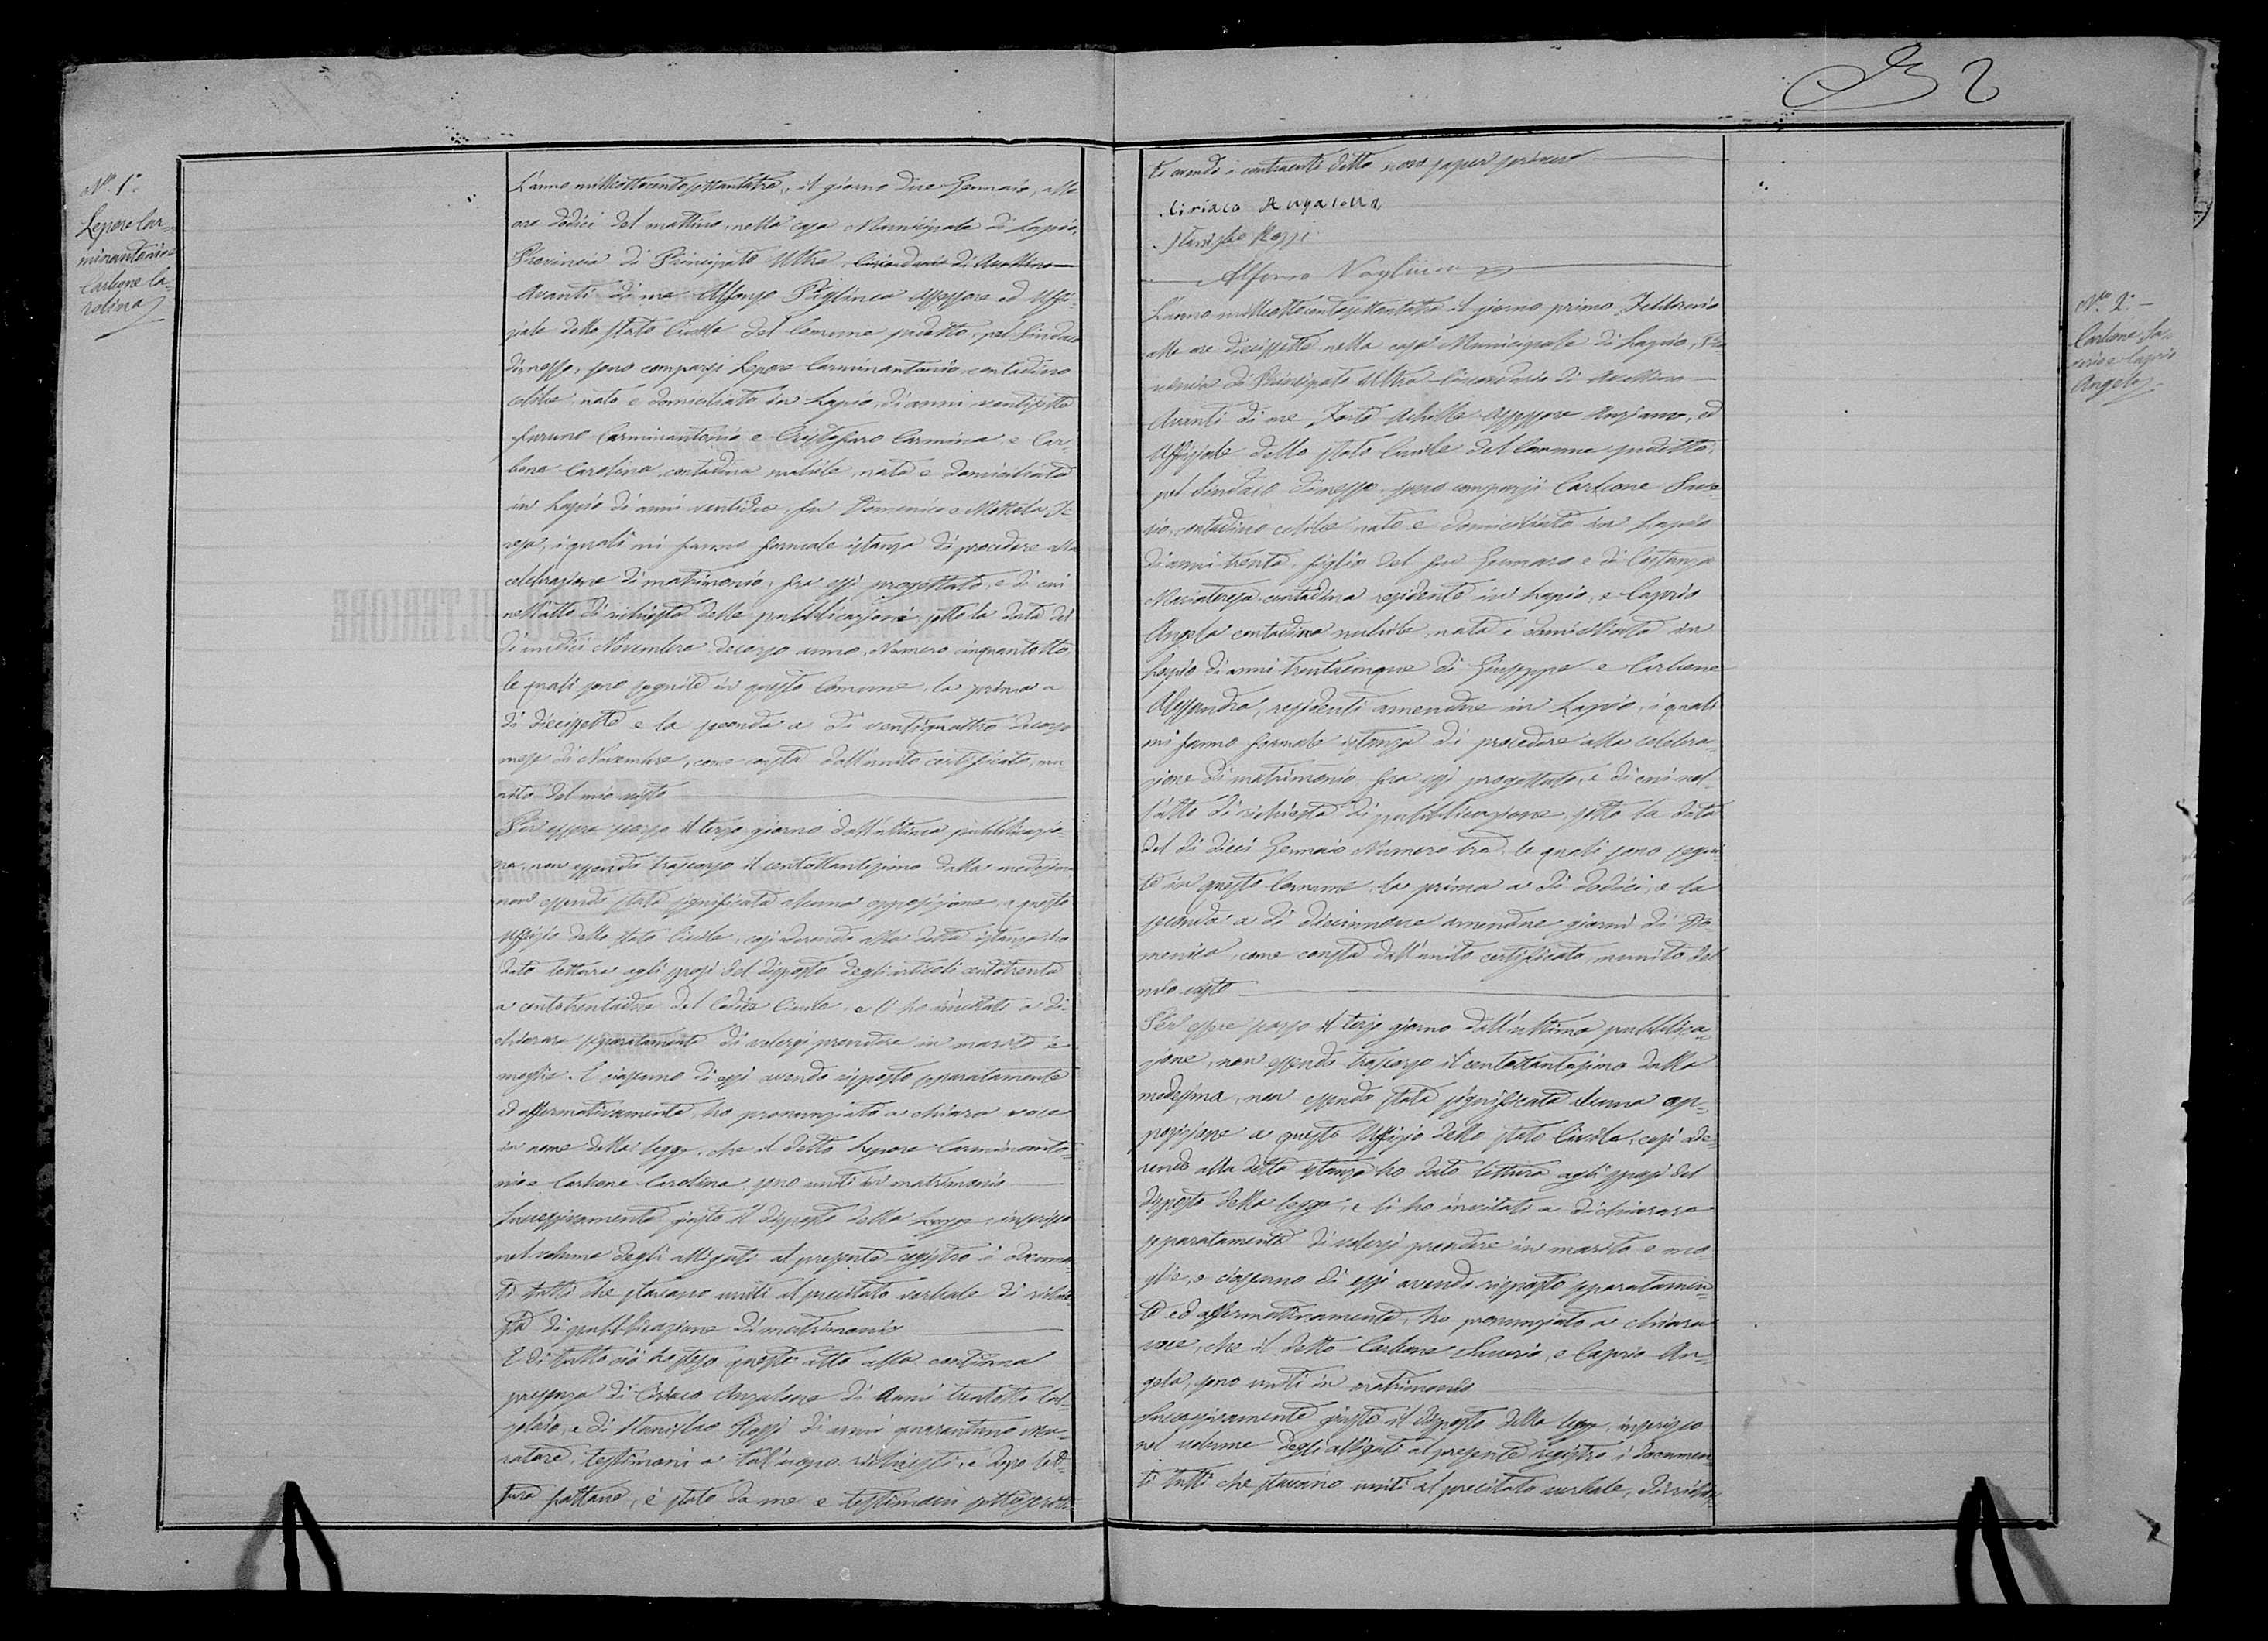 No. 1°
Lepore Car-
minantonio e
Carbone Ca-
rolina
L'anno milleottocentosettantatre, il giorno due Gennaio, alle
ore dodici del mattino, nella casa Municipale di Lapio,
Provincia di Principato Ultra, Circondario di Avellino
Avanti di me Alfonso Assessore ed Uffi-
ziale dello Stato Civile del Comune predetto, pel Sindaco
dimesso, sono comparsi Lepore Carminantonio contadino
celibe, nato e domiciliato in Lapio, di anni ventisette
furono Carminantonio e Cristofaro Carmina, e Car-
bone Carolina contadina nubile, nata e domiciliata
in Lapio di anni ventidue, fu Domenico e Mottola Te-
resa, i quali mi fanno formale istanza di procedere alla
celebrazione di matrimonio, fra essi progettato, e di cui
nell'atto di richiesta delle pubblicazioni sotto la data del
dì undici Novembre decorso anno, Numero cinquantotto
le quali sono seguite in questo Comune, la prima a
dì diecissette e la seconda a dì ventiquattro decorso
mese di Novembre, come consta dall'unito certificato, mu-
nito del mio visto
Per essere scorso il terzo giorno dall'ultima pubblicazio-
ne, non essendo trascorso il centottantesimo dalla medesima
non essendo stata significata alcuna opposizione, a questo
Uffizio dello Stato Civile, così aderendo alla detta istanza, ho
dato lettura agli sposi del disposto degli articoli centotrenta
a centotrentadue del Codice Civile, e li ho invitati a di-
chiarare separatamente di volersi prendere in marito e
moglie. E ciascuno di essi avendo risposto separatamente
ed affermativamente, ho pronunziato a chiara voce
in nome della legge, che il detto Lepore Carminanto-
nio e Carbone Carolina, sono uniti in matrimonio
Successivamente giusto il disposto della Legge, inserisco
nel volume degli alligati al presente registro i documen-
ti tutti che stavano uniti al precitato verbale di richie-
sta di pubblicazione di matrimonio
E di tutto ciò ho steso questo atto alla continua
presenza di Ciriaco Anzalone di Anni trentotto Cal-
zolaio, e di Stanislao Rossi di anni quarantuno mu-
ratore, testimoni a tal'uopo richiesti, e dopo let-
tura fattane, è stato da me e testimoni sottoscritto
2
ti avendo i contraenti detto non saper scrivere
Ciriaco Anzalona
Stanislao Rossi
Alfonso
No. 2°
Carbone Sa-
verio e Caprio
Angela
L'anno milleottocentosettantatre il giorno primo Febbraio
alle ore diecissette, nella casa Municipale di Lapio, Pro-
vincia di Principato Ultra Circondario di Avellino
Avanti di me Forte Achille Assessore Anziano, ed
Uffiziale dello Stato Civile del Comune predetto,
pel Sindaco dimesso sono comparsi Carbone Save-
rio, contadino celibe nato e domiciliato in Lapio
di anni trenta, figlio del fu Gennaro e di Costanza
Mariateresa contadina residente in Lapio, e Caprio
Angela contadina nubile, nata e domiciliata in
Lapio di anni trentacinque di Giuseppe e Carbone
Alessandra, residenti amendue in Lapio, i quali
mi fanno formale istanza di procedere alla celebra-
zione di matrimonio fra essi progettato, e di cui nel-
l'atto di richiesta di pubblicazione sotto la data
del dì dieci Gennaio Numero tre, le quali sono segui-
te in questo Comune, la prima a dì dodici, e la
seconda a dì diecinnove amendue giorni di Do-
menica, come consta dall'unito certificato munito del
mio visto
Per essere scorso il terzo giorno dall'ultima pubblica-
zione, non essendo trascorso il centottantesimo dalla
medesima, non essendo stata significata alcuna op-
posizione a questo Uffizio dello Stato Civile, così ade-
rendo alla detta istanza ho dato lettura agli sposi del
disposto della legge, e li ho invitati a dichiarare
separatamente di volersi prendere in marito e mo-
glie, e ciascuno di essi avendo risposto separatamen-
te ed affermativamente, ho pronunziato a chiara
voce, che il detto Carbone Saverio, e Caprio An-
gela, sono uniti in matrimonio
Successivamente giusto il disposto della legge, inserisco
nel volume degli alligati al presente registro i documen-
ti tutti che stavano uniti al precitato verbale, di richie-